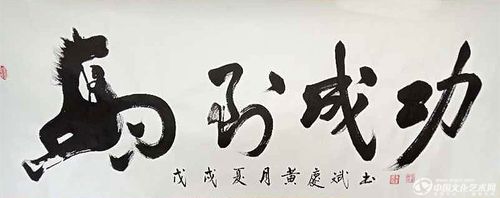 馬到成功
戊戌夏月黄慶斌书
中国文化艺术网